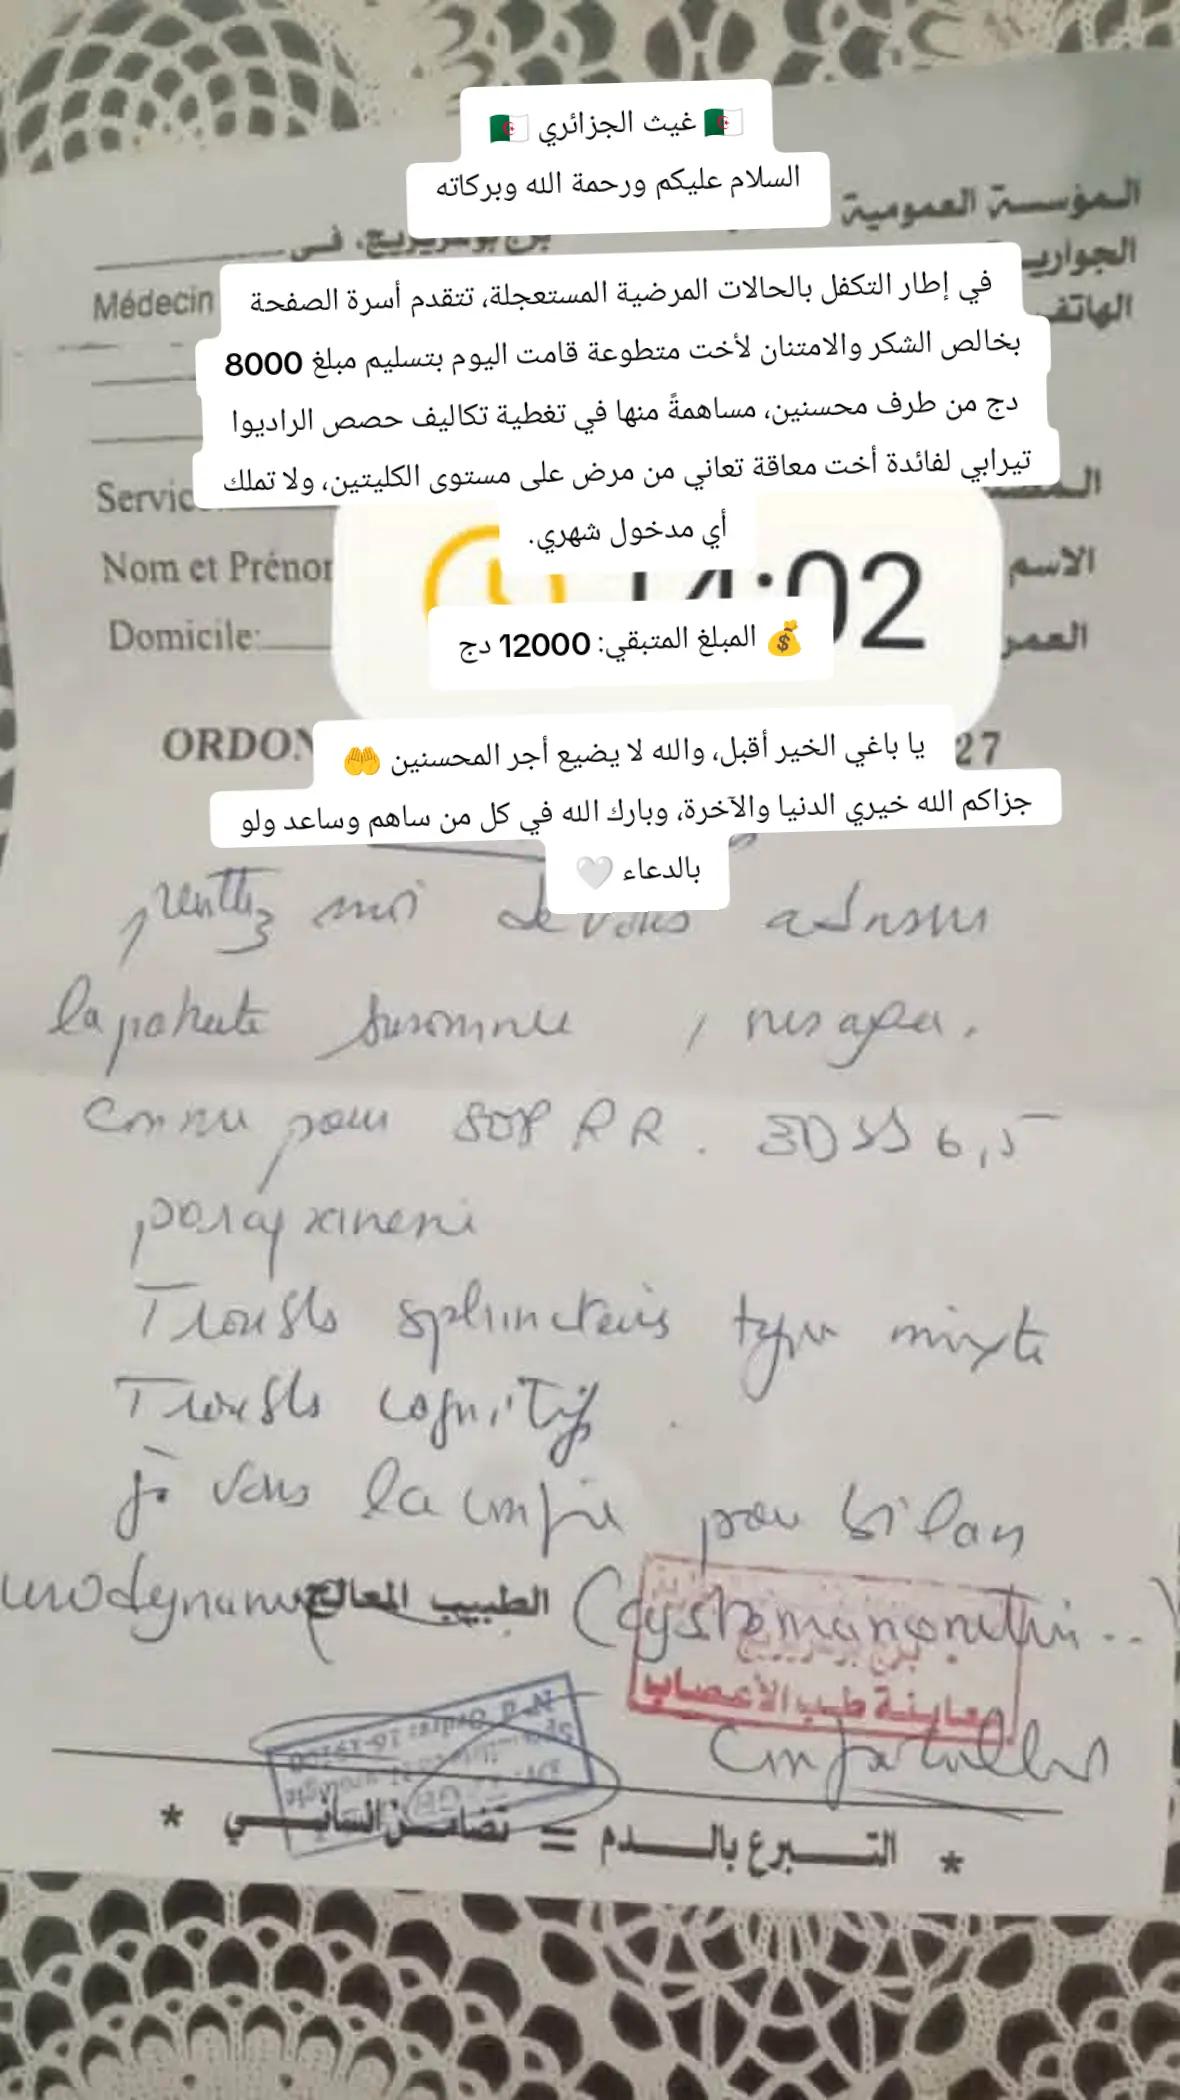 🇩🇿 غيث الجزائري 🇩🇿
السلام عليكم ورحمة الله وبركاته
المؤسسة العمومية
الجوارية
برج بوعريريج، في
Médecin
الهاتف
في إطار التكفل بالحالات المرضية المستعجلة، تتقدم أسرة الصفحة
بخالص الشكر والامتنان لأخت متطوعة قامت اليوم بتسليم مبلغ 8000
دج من طرف محسنين، مساهمةً منها في تغطية تكاليف حصص الراديوا
تيرابي لفائدة أخت معاقة تعاني من مرض على مستوى الكليتين، ولا تملك
أي مدخول شهري.
Servic
Nom et Prénor
الاسم
Domicile:
العمر
14:02
💰 المبلغ المتبقي: 12000 دج
ORDON
27
يا باغي الخير أقبل، والله لا يضيع أجر المحسنين 🤲
جزاكم الله خيري الدنيا والآخرة، وبارك الله في كل من ساهم وساعد ولو
بالدعاء 🤍
moi de vous
la patiente susnommée
connu pour SEP RR. EDSS 6,5
Troubls sphinctéris type mixte
Troubls cognitifs
je vous la confie pour bilan
urodynamique (cystomanométrie...
الطبيب المعالج
برج بوعريريج
معاينة طب الأعصاب
* التبرع بالدم = تضامن إنساني *